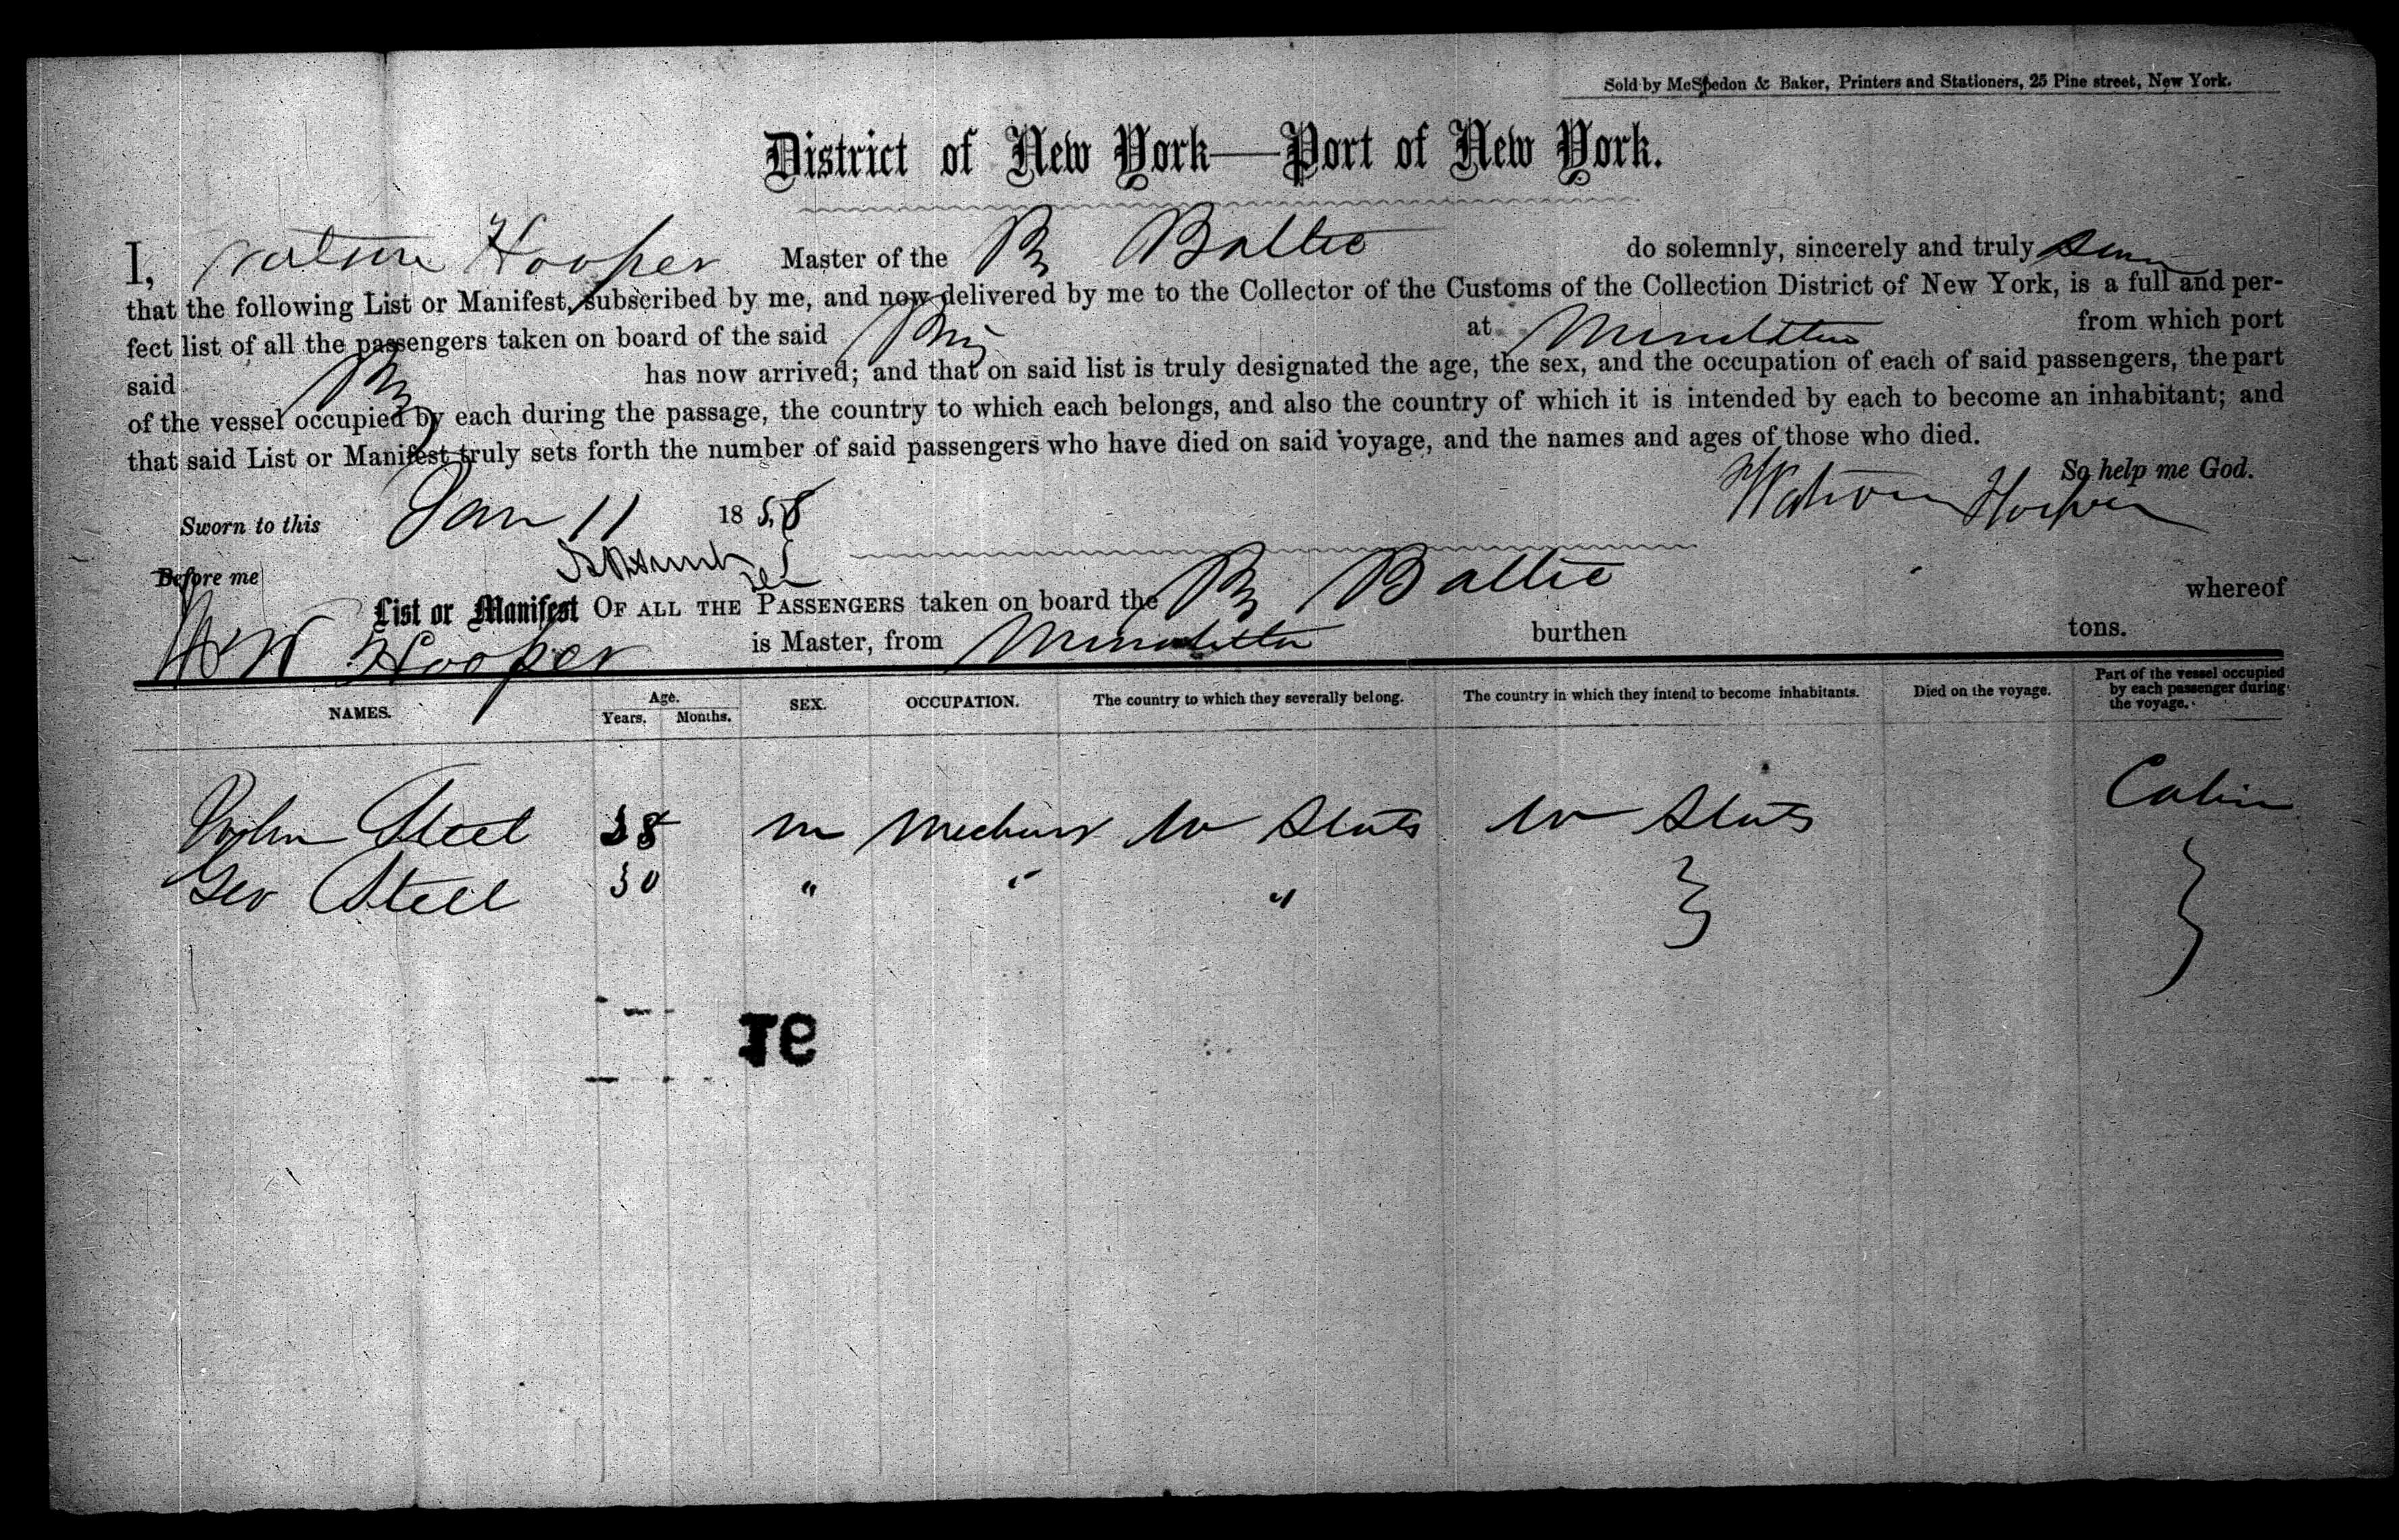 Sold by McSpedon & Baker, Printers and Stationers, 25 Pine street, New York.
District of New York—Port of New York.
I, Watson Hooper Master of the Brig Baltic do solemnly, sincerely and truly swear
that the following List or Manifest, subscribed by me, and now delivered by me to the Collector of the Customs of the Collection District of New York, is a full and per-
fect list of all the passengers taken on board of the said Brig at from which port
said Brig has now arrived; and that on said list is truly designated the age, the sex, and the occupation of each of said passengers, the part
of the vessel occupied by each during the passage, the country to which each belongs, and also the country of which it is intended by each to become an inhabitant; and
that said List or Manifest truly sets forth the number of said passengers who have died on said voyage, and the names and ages of those who died.
So help me God.
Sworn to this Jan 11 1858 Watson Hooper
Before me
List or Manifest OF ALL THE PASSENGERS taken on board the Brig Baltic whereof
W Hooper is Master, from burthen tons.
NAMES. Age. Years. Months. SEX. OCCUPATION. The country to which they severally belong. The country in which they intend to become inhabitants. Died on the voyage. Part of the vessel occupied by each passenger during the voyage.
John Steel 38 m Mechanic U States U States Cabin
Geo Steel 30 " " "
16